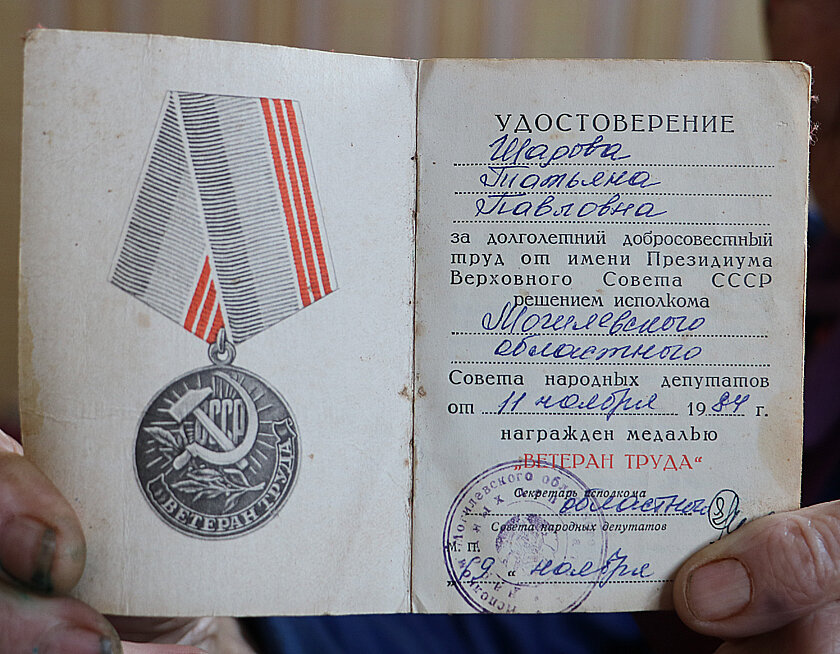 СССР
ВЕТЕРАН ТРУДА
УДОСТОВЕРЕНИЕ
Шарова
Татьяна
Павловна
за долголетний добросовестный
труд от имени Президиума
Верховного Совета СССР
решением исполкома
Могилевского
областного
Совета народных депутатов
от 11 ноября 1984 г.
награжден медалью
„ВЕТЕРАН ТРУДА“
Секретарь исполкома
областного
Совета народных депутатов
М. П.
„19“ ноября
Могилевского